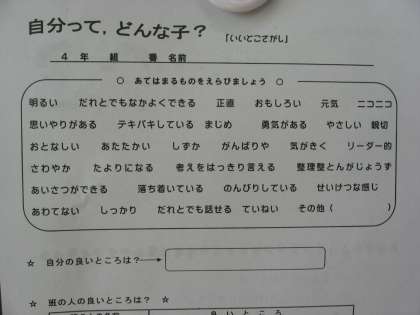 自分って，どんな子？ 「いいとこさがし」
4 年 組 番 名前
○ あてはまるものをえらびましょう ○
明るい だれとでもなかよくできる 正直 おもしろい 元気 ニコニコ
思いやりがある テキパキしている まじめ 勇気がある やさしい 親切
おとなしい あたたかい しずか がんばりや 気がきく リーダー的
さわやか たよりになる 考えをはっきり言える 整理整とんがじょうず
あいさつができる 落ち着いている のんびりしている せいけつな感じ
あわてない しっかり だれとでも話せる ていねい その他（ ）
☆ 自分の良いところは？→
☆ 班の人の良いところは？ ☆
良 い と こ ろ